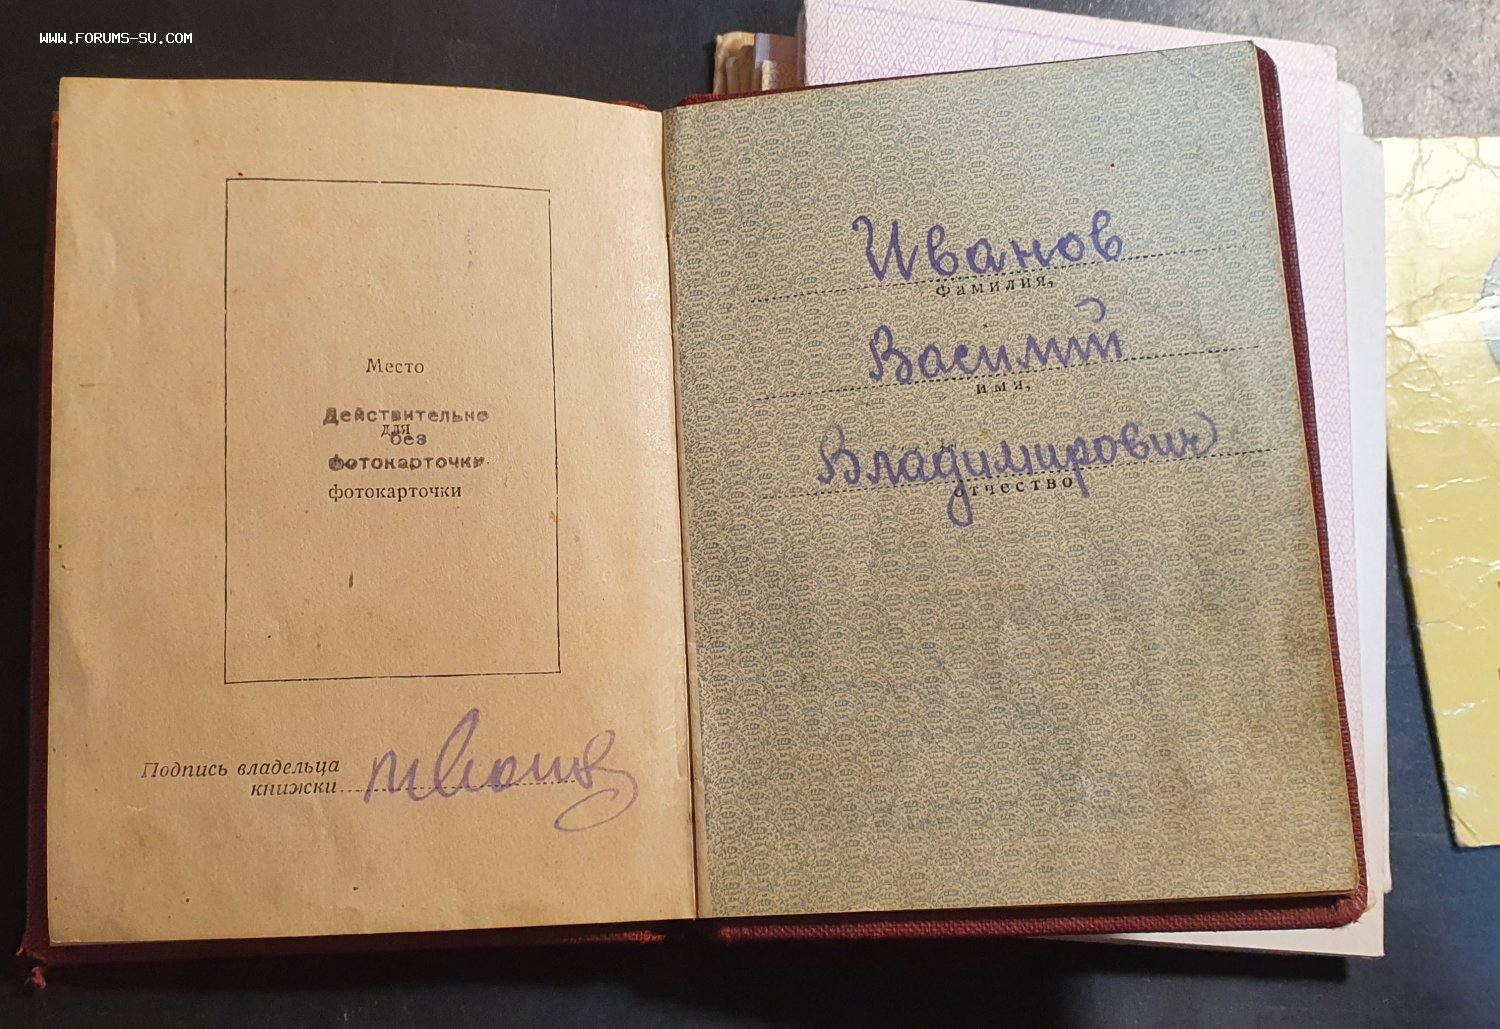 WWW.FORUMS-SU.COM
Место
Действительно
для
без
фотокарточки
фотокарточки
Подпись владельца
книжки
Иванов
фамилия,
Василий
имя,
Владимирович
отчество